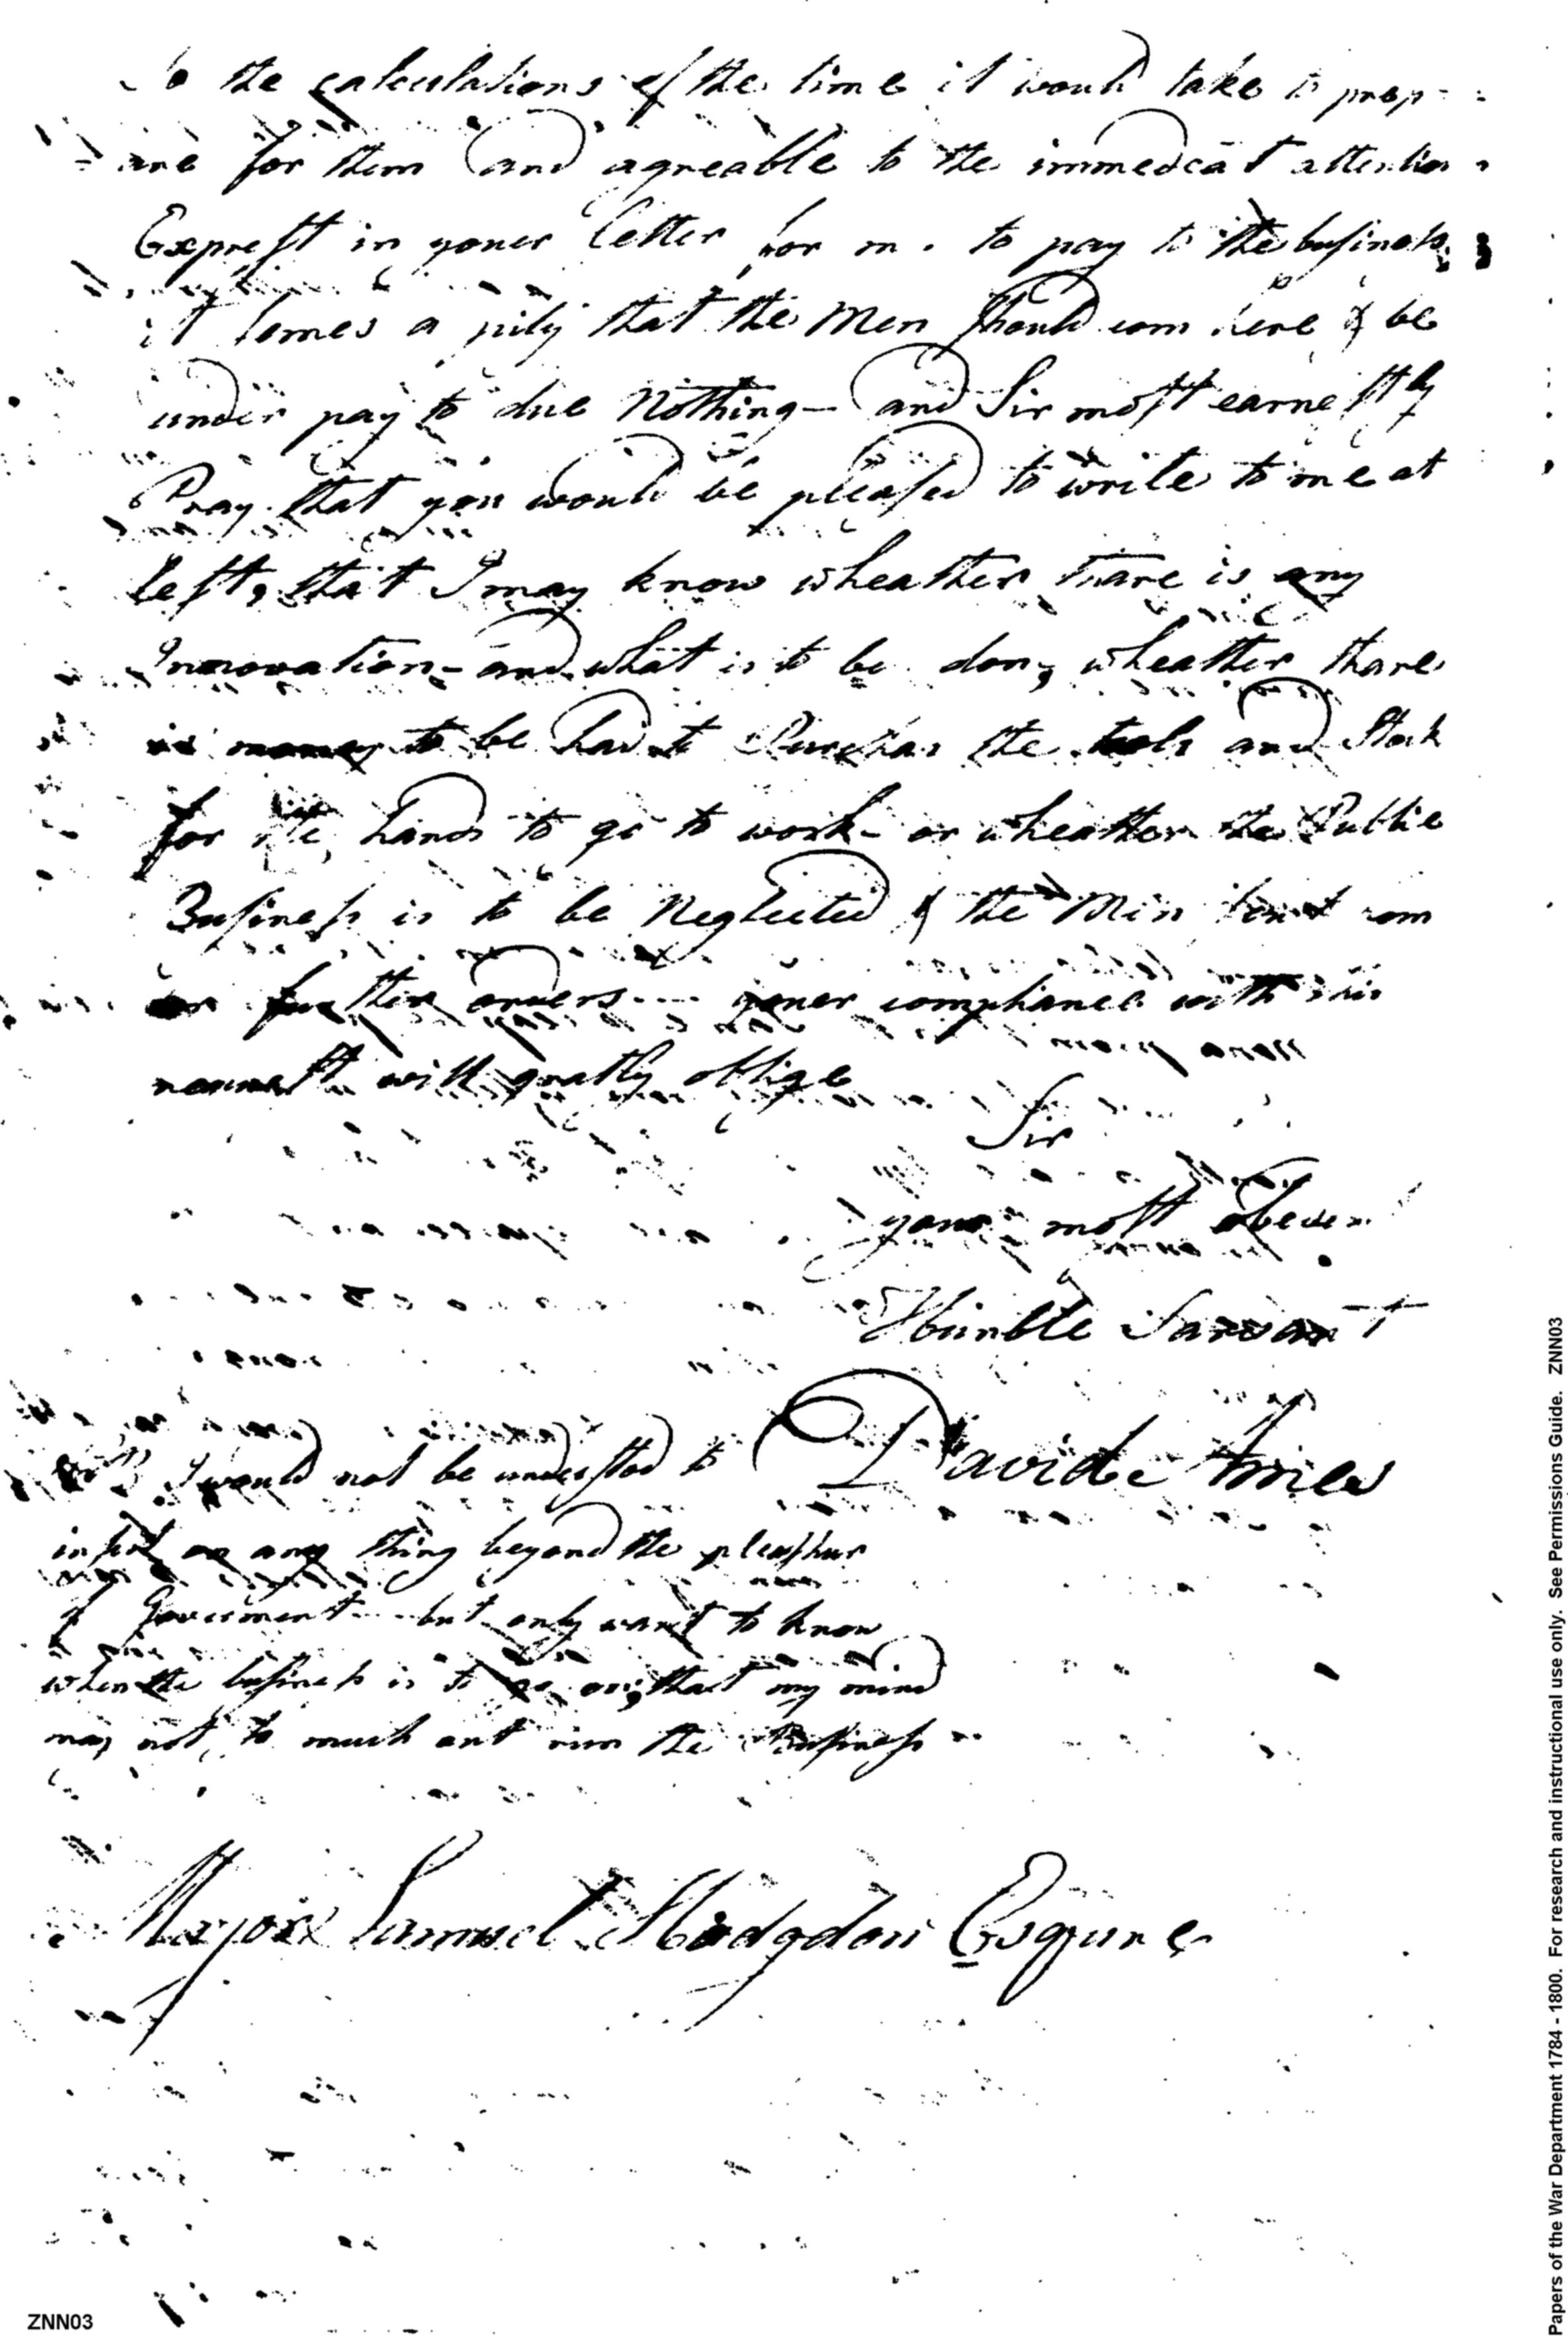 to the calculations of the time it would take to prep-
are for them and agreable to the immedeat attention
Exprest in youer letter for me to pay to the business
it semes a pity that the Men should com here & be
under pay to due Nothing - and Sir most earnestly
Pray that you would be pleased to write to me at
left, that I may know wheather thare is any
Innovation - and what is to be don, wheather thare
is money to be had to Purchas the tools and Stock
for the hands to go to work - or wheather the Public
Business is to be Neglected & the Men com
further orders - youer complianc with this
will gratly oblige
Sir
your most obeden
Humble Sarvant
David Ames
NB I would not be understod to
insist on any thing beyond the pleashur
of Goverment - but only want to know
when the business is to go on, that my mind
may not to much out run the Business
Major Samuel Hodgdon Esquire
ZNN03
Papers of the War Department 1784 - 1800. For research and instructional use only. See Permissions Guide. ZNN03